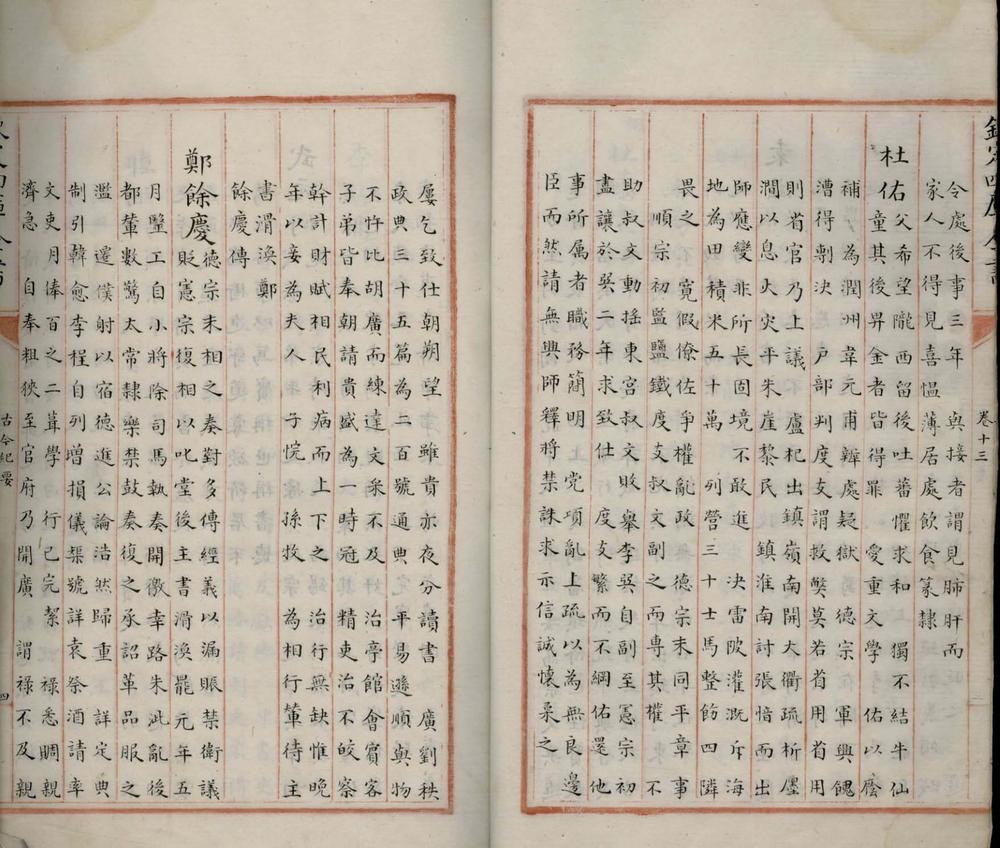 欽定四庫全書
卷十三
令處後事三年　與接者謂見肺肝而
家人不得見喜慍　薄居處飲食　篆隸
杜佑父希望隴西留後吐蕃懼求和　獨不結牛仙
童其後畀金者皆得罪　愛重文學　佑以廕
補為潤州韋元甫辨處疑獄　德宗軍興餽
漕得剸決　戶部判度支謂救獘莫若省用省用
則省官乃上議　盧杞出鎮嶺南開大衢疏析廛
澗以息火灾平朱崖黎民　鎮淮南討張愔而出
師應變非所長固境不敢進　決雷陂灌溉斥海
地為田積米五十萬　列營三十士馬整飭四隣
畏之　寬假僚佐爭權亂政　德宗末同平章事
順宗初監鹽鐵度支叔文副之而専其權　不
助叔文動揺東宮叔文敗舉李巽自副至憲宗初
盡讓於巽二年求致仕　度支繁而不綱佑還他
事所属者職務簡明　党項亂上疏以為無良邊
臣而然請無興師釋將禁誅求示信誠懷柔之
屢乞致仕朝朔望雖貴亦夜分讀書　廣劉秩
政典三十五篇為二百號通典　平易遜順與物
不忤比胡廣而練達文采不及　治亭館會賓客
子弟皆奉朝請貴盛為一時冠　精吏治不皎察
幹計財賦相民利病而上下之　治行無缺惟晚
年以妾為夫人　子悗　孫牧　為相行輩待主
書滑渙鄭
餘慶傳
鄭餘慶德宗末相之奏對多傳經義以漏賑禁衛議
貶憲宗復相以叱堂後主書滑渙罷元年五
月墅工自小將除司馬執奏開徼幸路朱泚亂後
都輦數驚太常隸樂禁鼓奏復之承詔革品服之
濫　遷僕射以宿德進公論浩然歸重　詳定典
制引韓愈李程自列增損儀槼號詳衷祭酒請率
文吏月俸百之二葺學　行已完絜　禄悉賙親
濟急　自奉粗狹至官府乃開廣　謂祿不及親
古今紀要
四